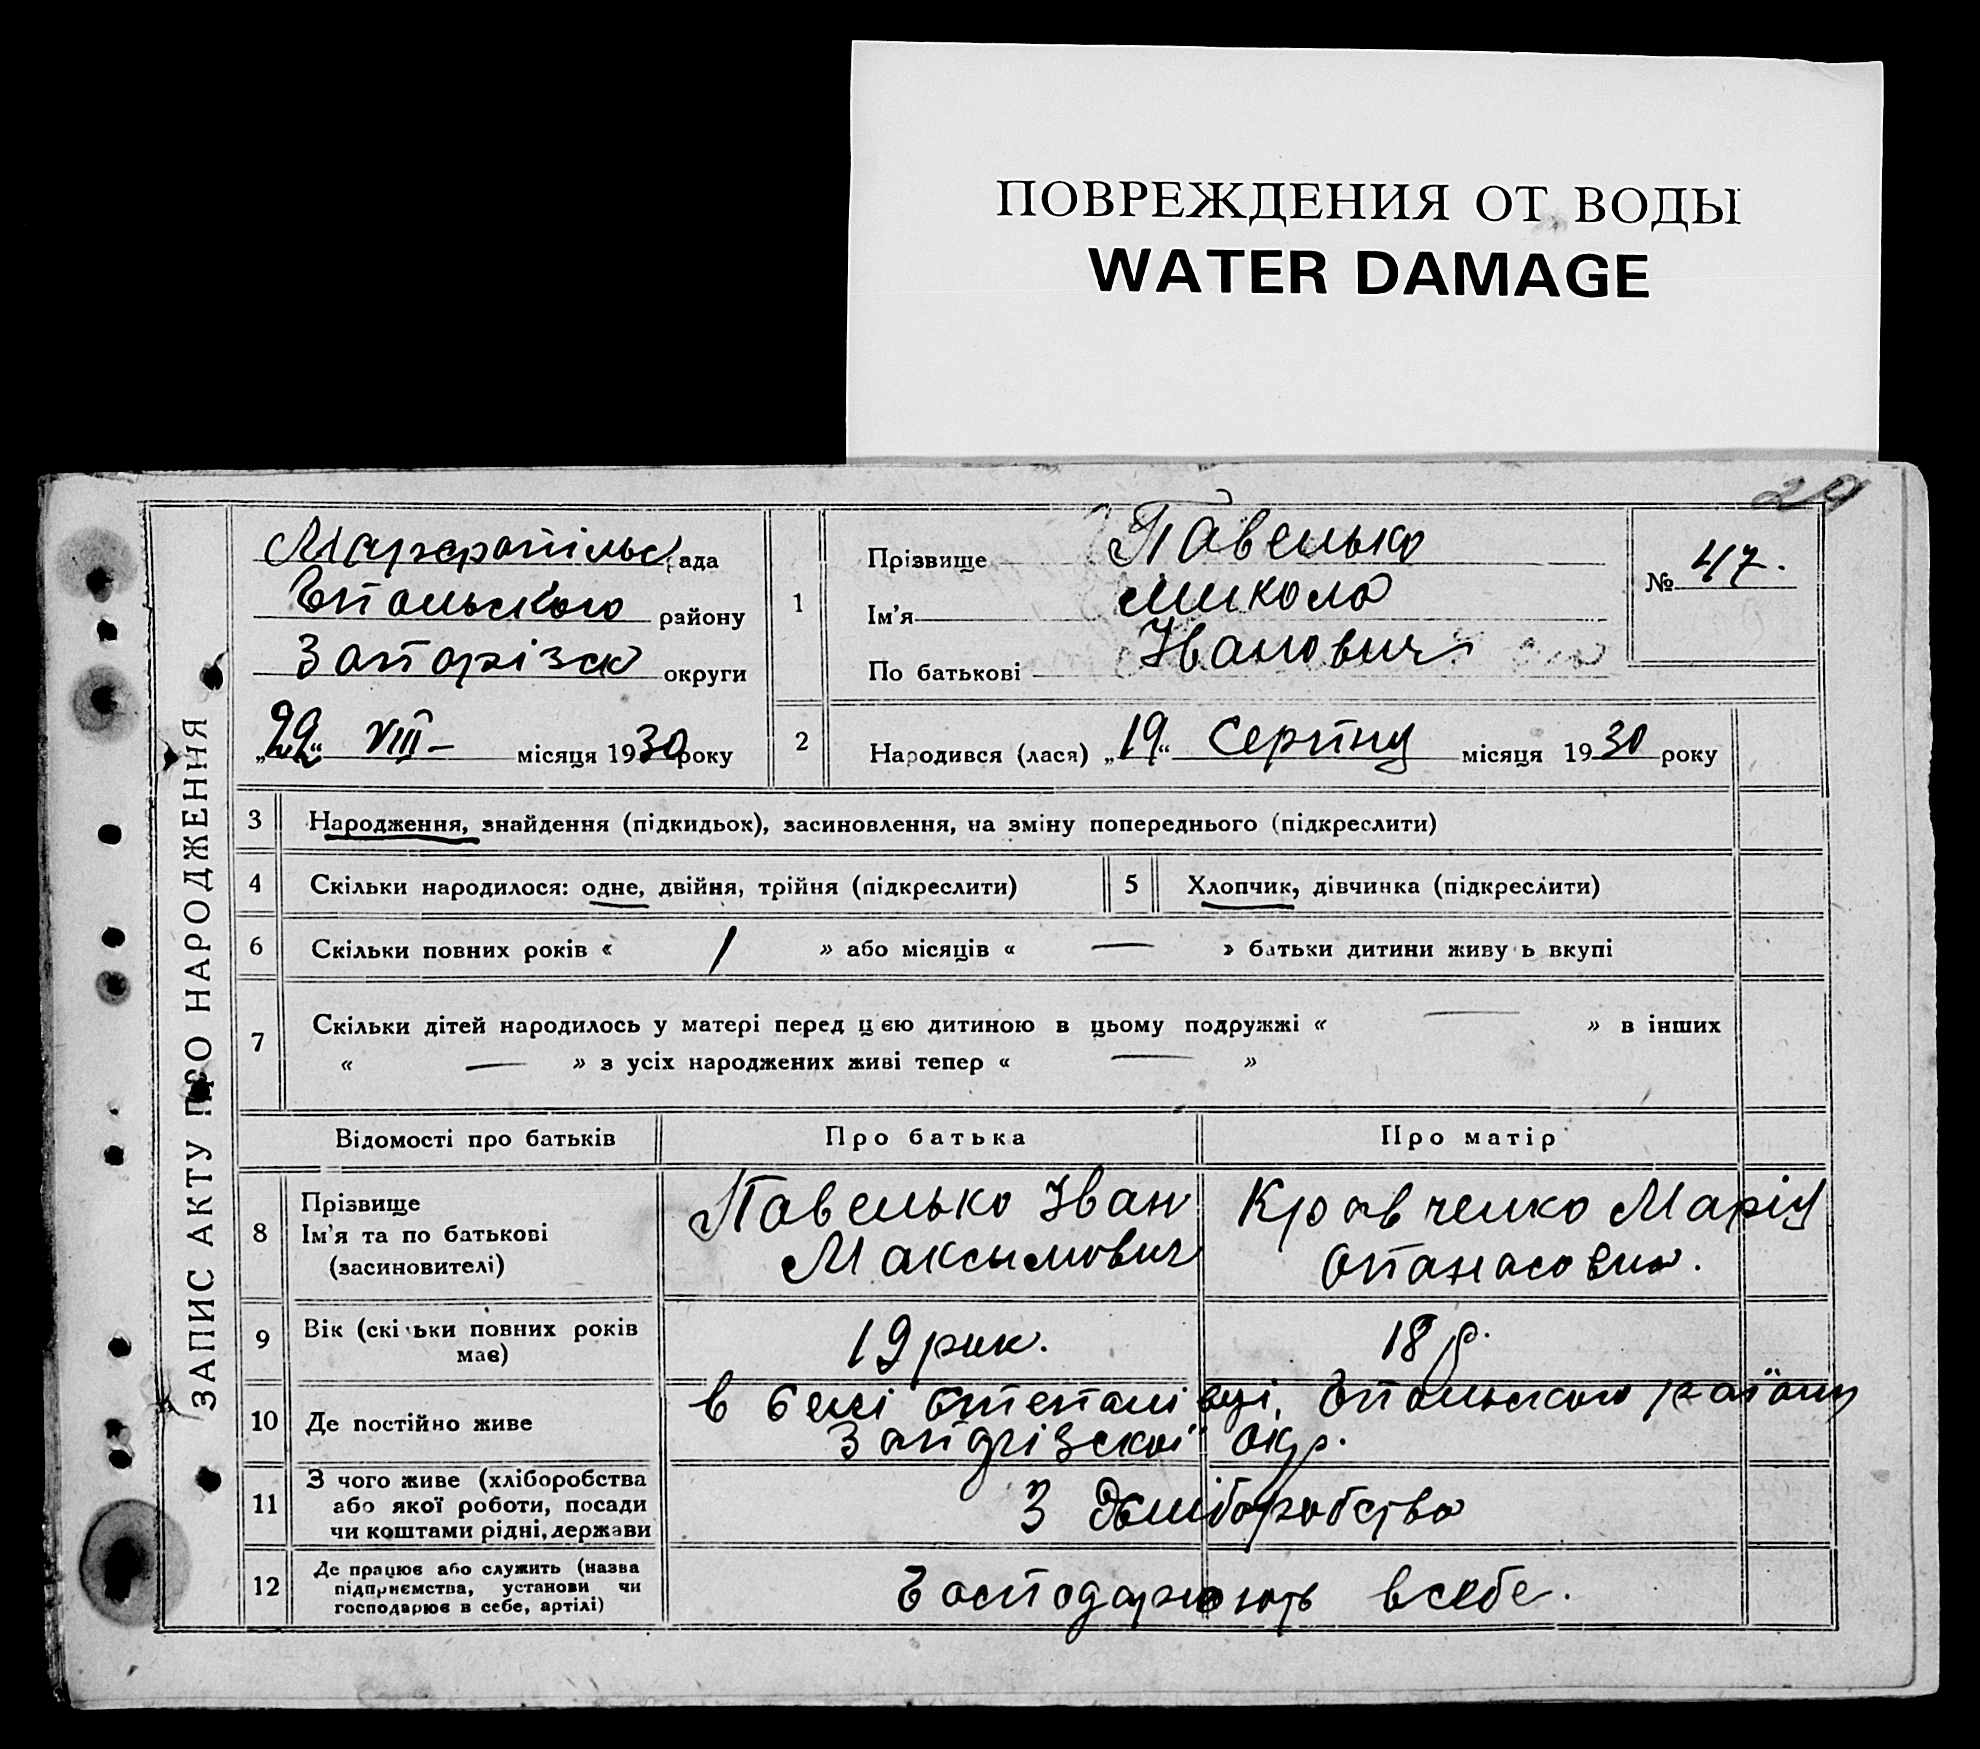 ПОВРЕЖДЕНИЯ ОТ ВОДЫ
WATER DAMAGE
29
ЗАПИС АКТУ ПРО НАРОДЖЕННЯ
Маржопільс рада
Гпольського району
Запорізск округи
„22“ VIII – місяця 1930 року
1
Прізвище Павелько
Ім'я Микола
По батькові Іванович
№ 47.
2 Народився (лася) „19“ Серпну місяця 1930 року
3 Народження, знайдення (підкидьок), засиновлення, на зміну попереднього (підкреслити)
4 Скільки народилося: одне, двійня, трійня (підкреслити) 5 Хлопчик, дівчинка (підкреслити)
6 Скільки повних років « 1 » або місяців « — » батьки дитини живу ь вкупі
7 Скільки дітей народилось у матері перед цією дитиною в цьому подружжі « — » в інших
« — » з усіх народжених живі тепер « — »
Відомості про батьків Про батька Про матір
8 Прізвище Ім'я та по батькові (засиновителі)
Павелько Іван Максымович
Кравченко Марія Опанасовна.
9 Вік (скільки повних років має) 19 рик. 18 р.
10 Де постійно живе в селі Степанівці, району
Запорізскої окр.
11 З чого живе (хліборобства або якої роботи, посади чи коштами рідні, держави З хліборобства
12 Де працює або служить (назва підприємства, установи чи господарює в себе, артілі) Господарюють в себе.